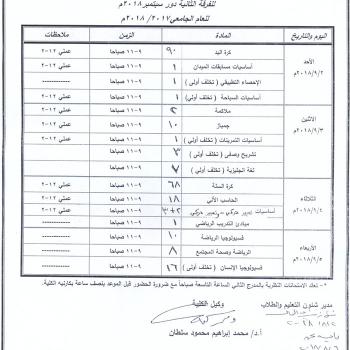 للفرقة الثانية دور سبتمبر ٢٠١٨م
للعام الجامعي ٢٠١٧/ ٢٠١٨م
اليوم والتاريخ المادة الزمن ملاحظات
الأحد ٢٠١٨/٩/٢م
كرة اليد ٩٠ ٩-١١ صباحا عملي ١٢-٢
أساسيات مسابقات الميدان ١ ٩-١١ صباحا عملي ١٢-٢
الإحصاء التطبيقي ( تخلف أولى ) ١ ٩-١١ صباحا ------------
أساسيات السباحة ( تخلف أولى ) ١ ٩-١١ صباحا عملي ١٢-٢
الاثنين ٢٠١٨/٩/٣م
ملاكمة ٢ ٩-١١ صباحا عملي ١٢-٢
جمباز ١٠ ٩-١١ صباحا عملي ١٢-٢
أساسيات التمرينات ( تخلف أولى ) ١ ٩-١١ صباحا عملي ١٢-٢
تشريح وصفي ( تخلف أولى ) ٢ ٩-١١ صباحا ------------
لغة انجليزية ( تخلف أولى ) ٧ ٩-١١ صباحا ------------
الثلاثاء ٢٠١٨/٩/٤م
كرة السلة ٦٨ ٩-١١ صباحا عملي ١٢-٢
الحاسب الآلي ١٨ ٩-١١ صباحا عملي ١٢-٢
أساسيات تعبير حركي - تعبير حركي ٢+٣ ٩-١١ صباحا عملي ١٢-٢
مبادئ التدريب الرياضي ١ ٩-١١ صباحا ------------
الأربعاء ٢٠١٨/٩/٥م
فسيولوجيا الرياضة ١٠ ٩-١١ صباحا ------------
الرياضة وصحة المجتمع ٨ ٩-١١ صباحا ------------
فسيولوجيا الإنسان ( تخلف أولى ) ١٦ ٩-١١ صباحا ------------
* تعقد الامتحانات النظرية بالمدرج الثاني الساعة التاسعة صباحاً مع ضرورة الحضور قبل الموعد بنصف ساعة بكارنيه الكلية.
مدير شئون التعليم والطلاب
وكيل الكلية
أ.د/ محمد إبراهيم محمود سلطان